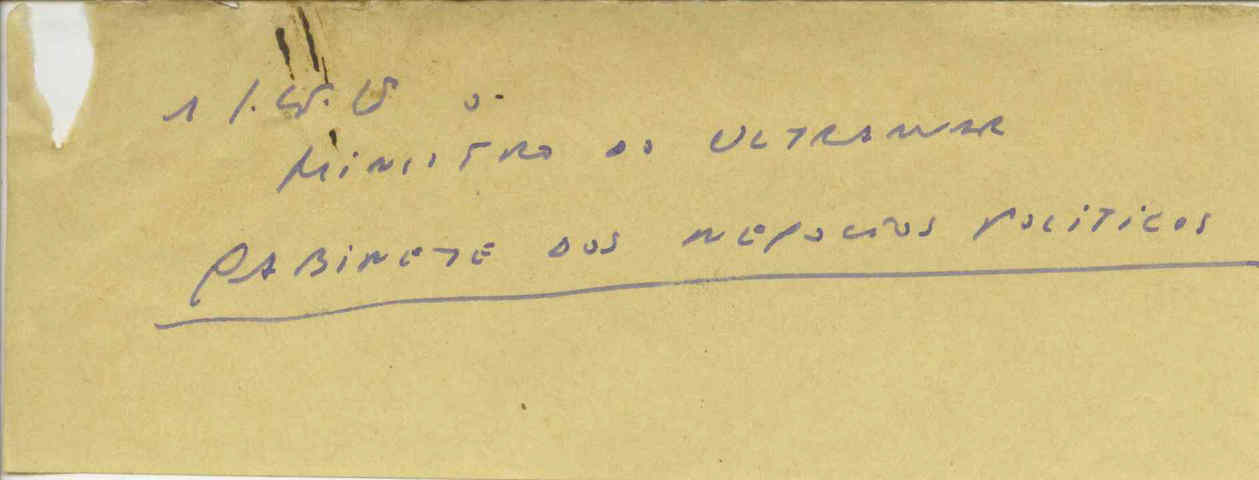 MINISTRO DO ULTRAMAR
GABINETE DOS NEGOCIOS POLITICOS